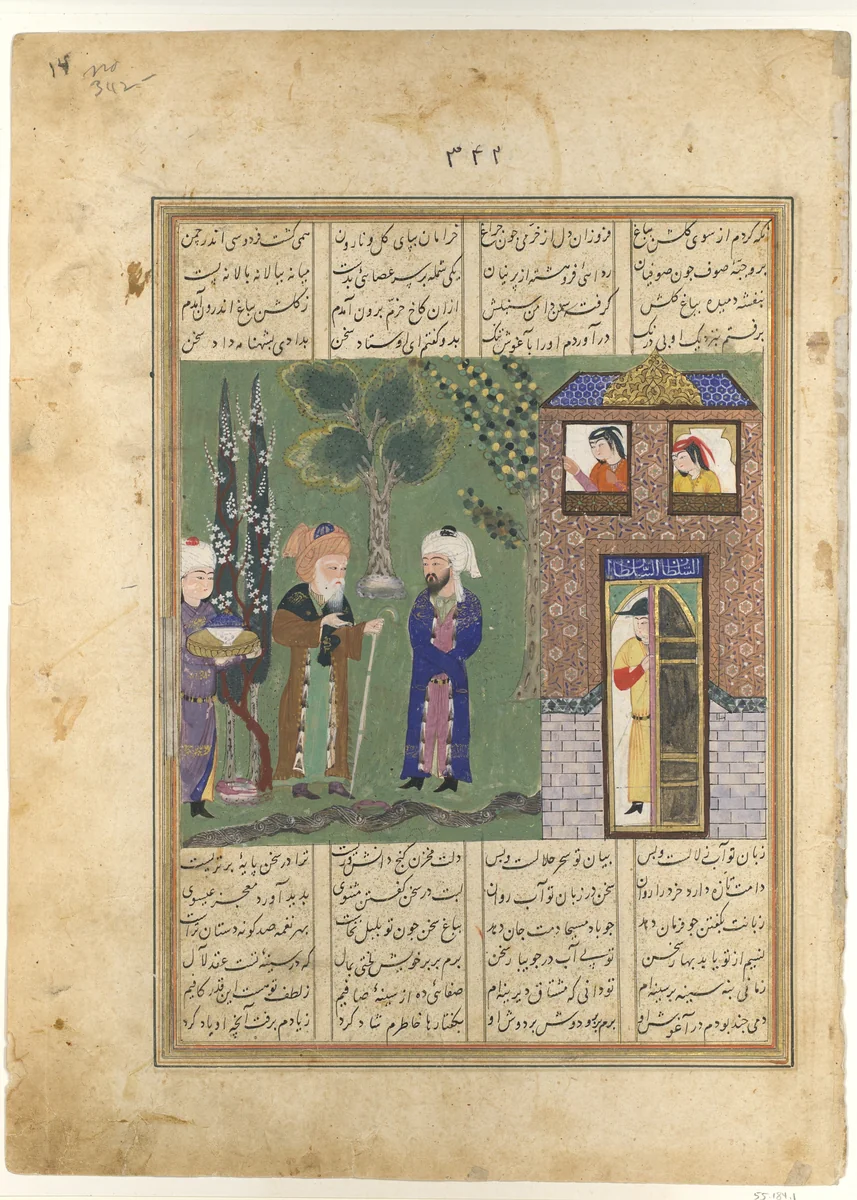 14 no
342
۳۴۲
نگه کردم از سوی گلشن بباغ فروزان دل از خرمی چون چراغ خرامان بپای گل و نارون همی گشت فردوسی اندر چمن
برو جبهٔ صوف چون صوفیان ردائی فروهشته از پرنیان یکی شمله بر سر عصائی بدست میانه ببالا نه بالا نه پست
بنفشه دمیده بباغ گلش گرفت دامن سنبلش ازان کاخ خرم برون آمدم ز گلشن بباغ اندرون آمدم
برفتم بنزدیک او بی درنگ درآوردم او را بآغوش تنگ بدو گفتم ای اوستاد سخن بدادی بشهنامه داد سخن
السلطان السلطان
زبان تو آب زلالست و بس بیان تو سحر حلالست و بس دلت مخزن گنج دانشورست ترا در سخن پایهٔ برترست
دمت تازه دارد خرد را روان سخن در زبان تو آب روان لبت در سخن گفتن مثنوی پدید آورد معجز عیسوی
زبانت بگفتن چو فرمان دهد چو باد مسیحا دمت جان دهد بباغ سخن چون تو بلبل نخاست بهر نغمه صد گونه دستان تراست
نسیم از تو یابد بهار سخن توئی آب در جویبار سخن برم بر بر خویش لختی بمال که در سینهٔ تست عقد لآل
زمانی بنه سینه بر سینه ام تو دانی که مشتاق دیرینه ام صفائی ده از سینهٔ صافیم ز لطف تو هست این قدر کافیم
دمی چند بودم در آغوش او برم بر بر و دوش بر دوش او بگفتارها خاطرم شاد کرد ز یادم برفت آنچه او یاد کرد
55.184.1